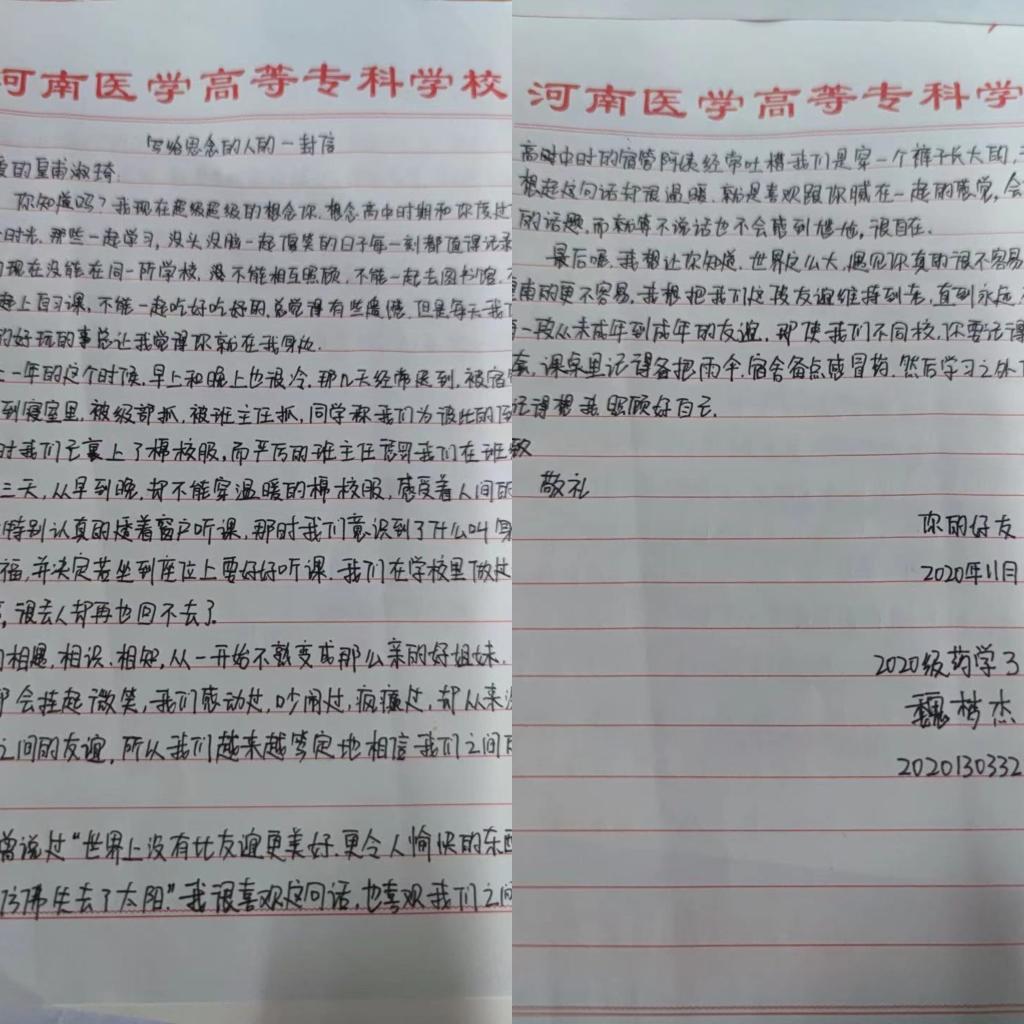 河南医学高等专科学校
写给思念的人的一封信
爱的皇甫淑琦:
你知道吗?我现在超级超级的想念你.想念高中时期和你度过
时光.那些一起学习,没头没脑一起傻笑的日子每一刻都值得记录
现在没能在同一所学校,也不能相互照顾,不能一起去图书馆,不
起上自习课,不能一起吃好吃好的.总觉得有些遗憾.但是每天我们
的好玩的事总让我觉得你就在我身边.
上一年的这个时候,早上和晚上也很冷.那几天经常迟到,被宿
到寝室里.被级部抓,被班主任抓,同学称我们为彼此的
时我们已裹上了棉校服,而严厉的班主任惩罚我们在班
三天,从早到晚,却不能穿温暖的棉校服,感受着人间的
特别认真的透着窗户听课,那时我们意识到了什么叫身
福,并决定若坐到座位上要好好听课.我们在学校里做过
,很去人却再也回不去了.
相遇,相识.相知,从一开始不熟变成那么亲的好姐妹.
会挂起微笑,我们感动过,吵闹过,疯癫过,却从来没
之间的友谊,所以我们越来越笃定地相信我们之间
曾说过"世界上没有比友谊更美好.更令人愉快的东西
仿佛失去了太阳."我很喜欢这句话,也喜欢我们之间
河南医学高等专科学
高中时的宿管阿姨经常吐槽我们是穿一个裤子长大的,
想起这句话却很温暖.就是喜欢跟你腻在一起的感觉,会
的话题.而就算不说话也不会感到尴尬,很自在.
最后呢.我想让你知道.世界这么大,遇见你真的很不容易
的更不容易.我想把我们这段友谊维持到老,直到永远.
一段从未成年到成年的友谊.即使我们不同校.你要记得
课桌里记得备把雨伞.宿舍备点感冒药.然后学习之外
记得想我.照顾好自己.
致
敬礼
你的好友
2020年11月
2020级药学3
魏梦杰
2020130332